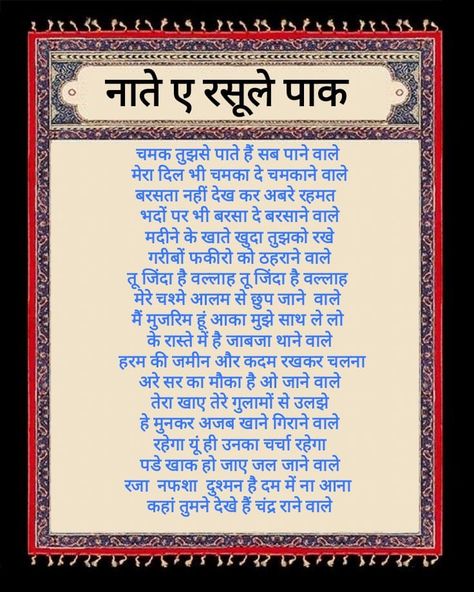 नाते ए रसूले पाक
चमक तुझसे पाते हैं सब पाने वाले
मेरा दिल भी चमका दे चमकाने वाले
बरसता नहीं देख कर अबरे रहमत
भदों पर भी बरसा दे बरसाने वाले
मदीने के खाते खुदा तुझको रखे
गरीबों फकीरो को ठहराने वाले
तू जिंदा है वल्लाह तू जिंदा है वल्लाह
मेरे चश्मे आलम से छुप जाने वाले
मैं मुजरिम हूं आका मुझे साथ ले लो
के रास्ते में है जाबजा थाने वाले
हरम की जमीन और कदम रखकर चलना
अरे सर का मौका है ओ जाने वाले
तेरा खाए तेरे गुलामों से उलझे
हे मुनकर अजब खाने गिराने वाले
रहेगा यूं ही उनका चर्चा रहेगा
पडे खाक हो जाए जल जाने वाले
रजा नफशा दुश्मन है दम में ना आना
कहां तुमने देखे हैं चंद्र राने वाले